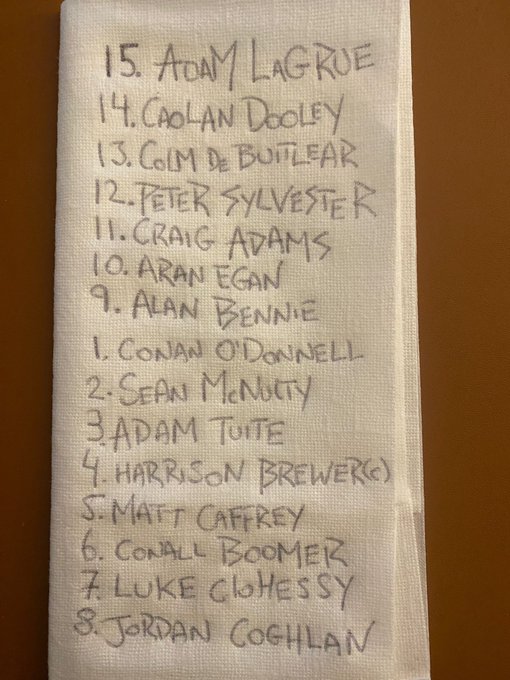 15. ADAM LAGRUE
14. CAOLAN DOOLEY
13. COLM DE BUITLEAR
12. PETER SYLVESTER
11. CRAIG ADAMS
10. ARAN EGAN
9. ALAN BENNIE
1. CONAN O'DONNELL
2. SEAN McNULTY
3. ADAM TUITE
4. HARRISON BREWER(c)
5. MATT CAFFREY
6. CONALL BOOMER
7. LUKE CloHESSY
8. JORDAN COGHLAN